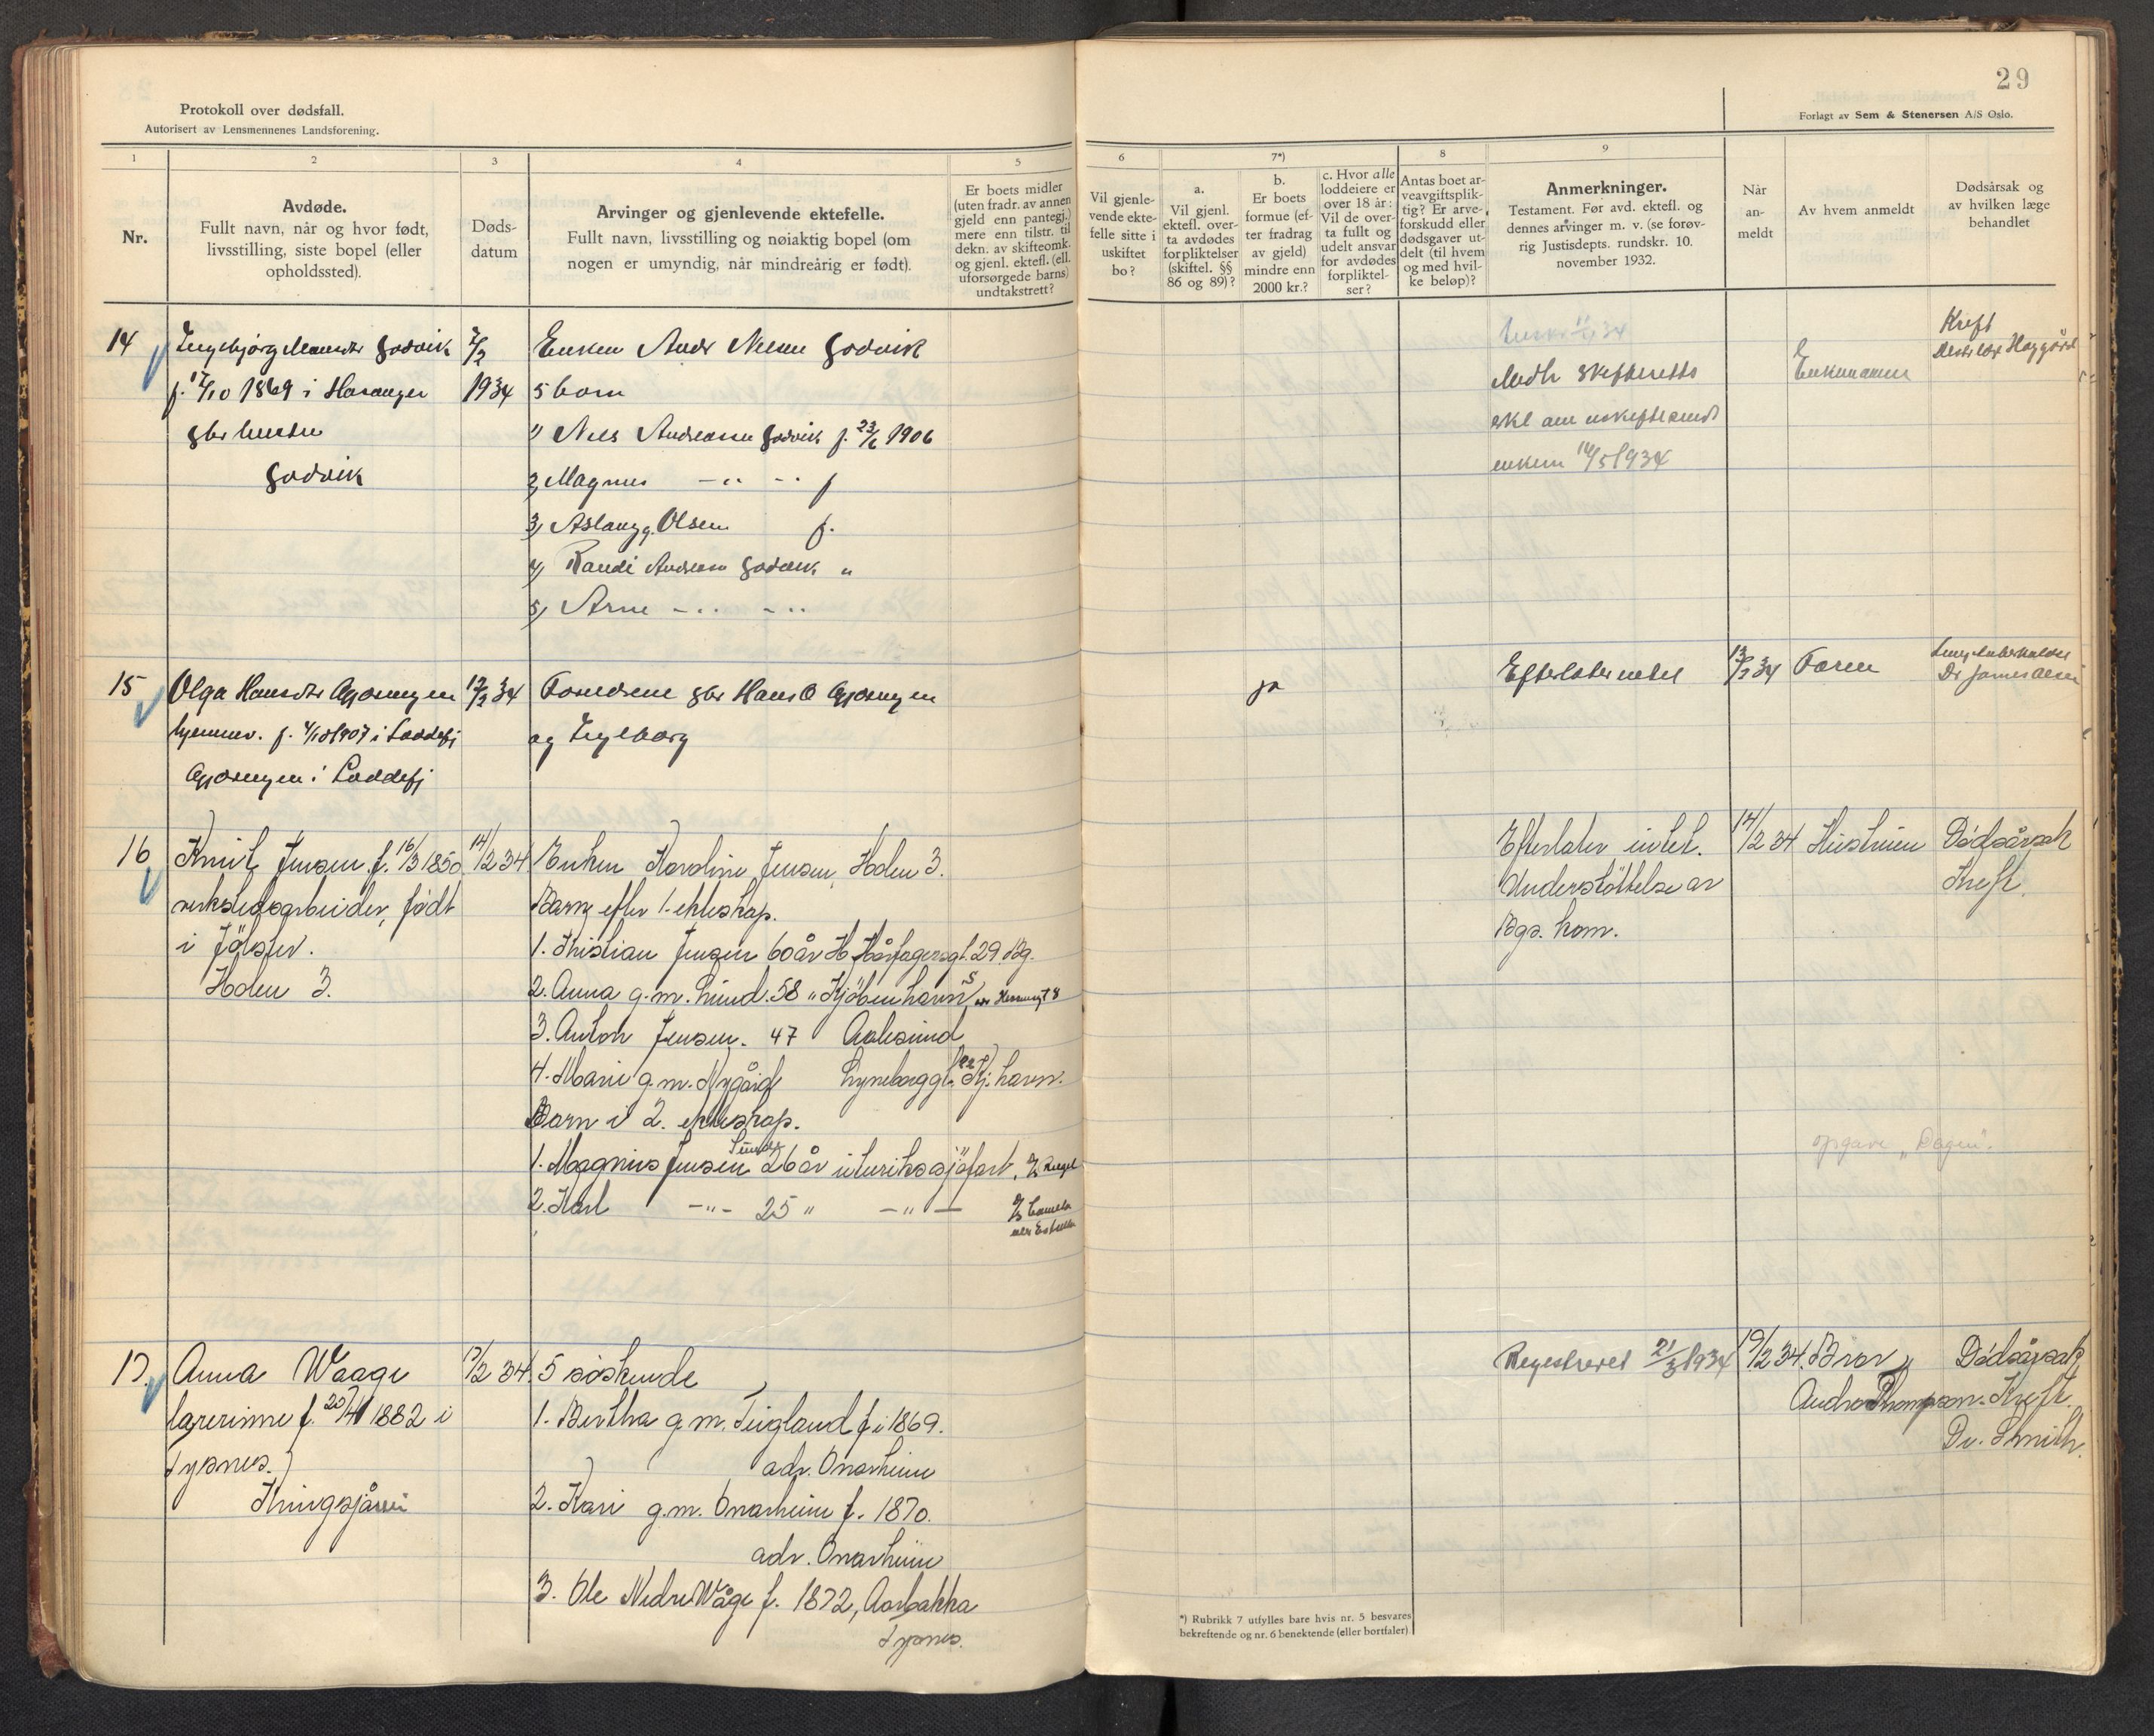 29
Protokoll over dødsfall.
Autorisert av Lensmennenes Landsforening.
Forlagt av Sem & Stenersen A/S Oslo.
1 2 3 4 5 6 7*) 8 9
Nr.
Avdøde.
Fullt navn, når og hvor født,
livsstilling, siste bopel (eller
opholdssted).
Døds-
datum
Arvinger og gjenlevende ektefelle.
Fullt navn, livsstilling og nøiaktig bopel (om
nogen er umyndig, når mindreårig er født).
Er boets midler
(uten fradr. av annen
gjeld enn pantegj.)
mere enn tilstr. til
dekn. av skifteomk.
og gjenl. ektefl. (ell.
uforsørgede barns)
undtakstrett?
Vil gjenle-
vende ekte-
felle sitte i
uskiftet
bo?
a.
Vil gjenl.
ektefl. over-
ta avdødes
forpliktelser
(skiftel. §§
86 og 89)?
b.
Er boets
formue (ef-
ter fradrag
av gjeld)
mindre enn
2000 kr.?
c. Hvor alle
loddeiere er
over 18 år:
Vil de over-
ta fullt og
udelt ansvar
for avdødes
forpliktel-
ser?
Antas boet ar-
veavgiftsplik-
tig? Er arve-
forskudd eller
dødsgaver ut-
delt (til hvem
og med hvil-
ke beløp)?
Anmerkninger.
Testament. Før avd. ektefl. og
dennes arvinger m. v. (se forøv-
rig Justisdepts. rundskr. 10.
november 1932.
Når
an-
meldt
Av hvem anmeldt
Dødsårsak og
av hvilken læge
behandlet
14
Godvik
f. 17/10 1869 i
Godvik
1934
Nilsen Godvik
5 born
1) Nils Andreassen Godvik f. 23/6 1906
2) Magnus -"- -"- f
3) Aslaug g. Olsen f.
4) Randi Godvik "
5) Arne -"- -"-
14/5 1934
Enkemannen
Kreft
15
Olga Hansdtr
i Loddefj
i Loddefj
12/2 34
Foreldrene gbr Hans O
og Ingeborg
ja
Efterlater intet
13/2 34
Faren
16
Knut Jensen f. 16/3 1850
verkstedsarbeider, født
i Jölster.
Holen 3.
14/2 34
Enken Karoline Jensen, Holen 3.
Barn efter 1. ekteskap.
1. Kristian Jensen 60 år H. Hårfagersgt. 29. Bg.
2. Anna g.m. Lund. 58 " Kjöbenhavn S
3. Anton Jensen. 47 Aalesund
4. Marie g.m. Nygård Kj.havn.
Barn i 2. ekteskap.
1. Magnus Jensen 26 år utenriks sjöfart,
2. Karl -"- 25 " -"-
Efterlater intet.
Understöttelse av
Bgs. kom.
14/2 34
Hustruen
Dödsårsak
Kreft.
opgave "Dagen".
17.
Anna Waage
lærerinne f. 20/4 1882 i
Tysnes.
17/2 34.
5 söskende
1. Bertha g.m. Teigland f. i 1869.
adr. Onarheim
2. Kari g.m. Onarheim f. 1870.
adr. Onarheim
3. Ole Nedre Våge f. 1872, Aarbakka
Tysnes.
Registreret 21/3 1934
19/2 34.
Bror
Thompson.
Dödsårsak
Kreft.
Dr. Smith.
*) Rubrikk 7 utfylles bare hvis nr. 5 besvares
bekreftende og nr. 6 benektende (eller bortfaler)